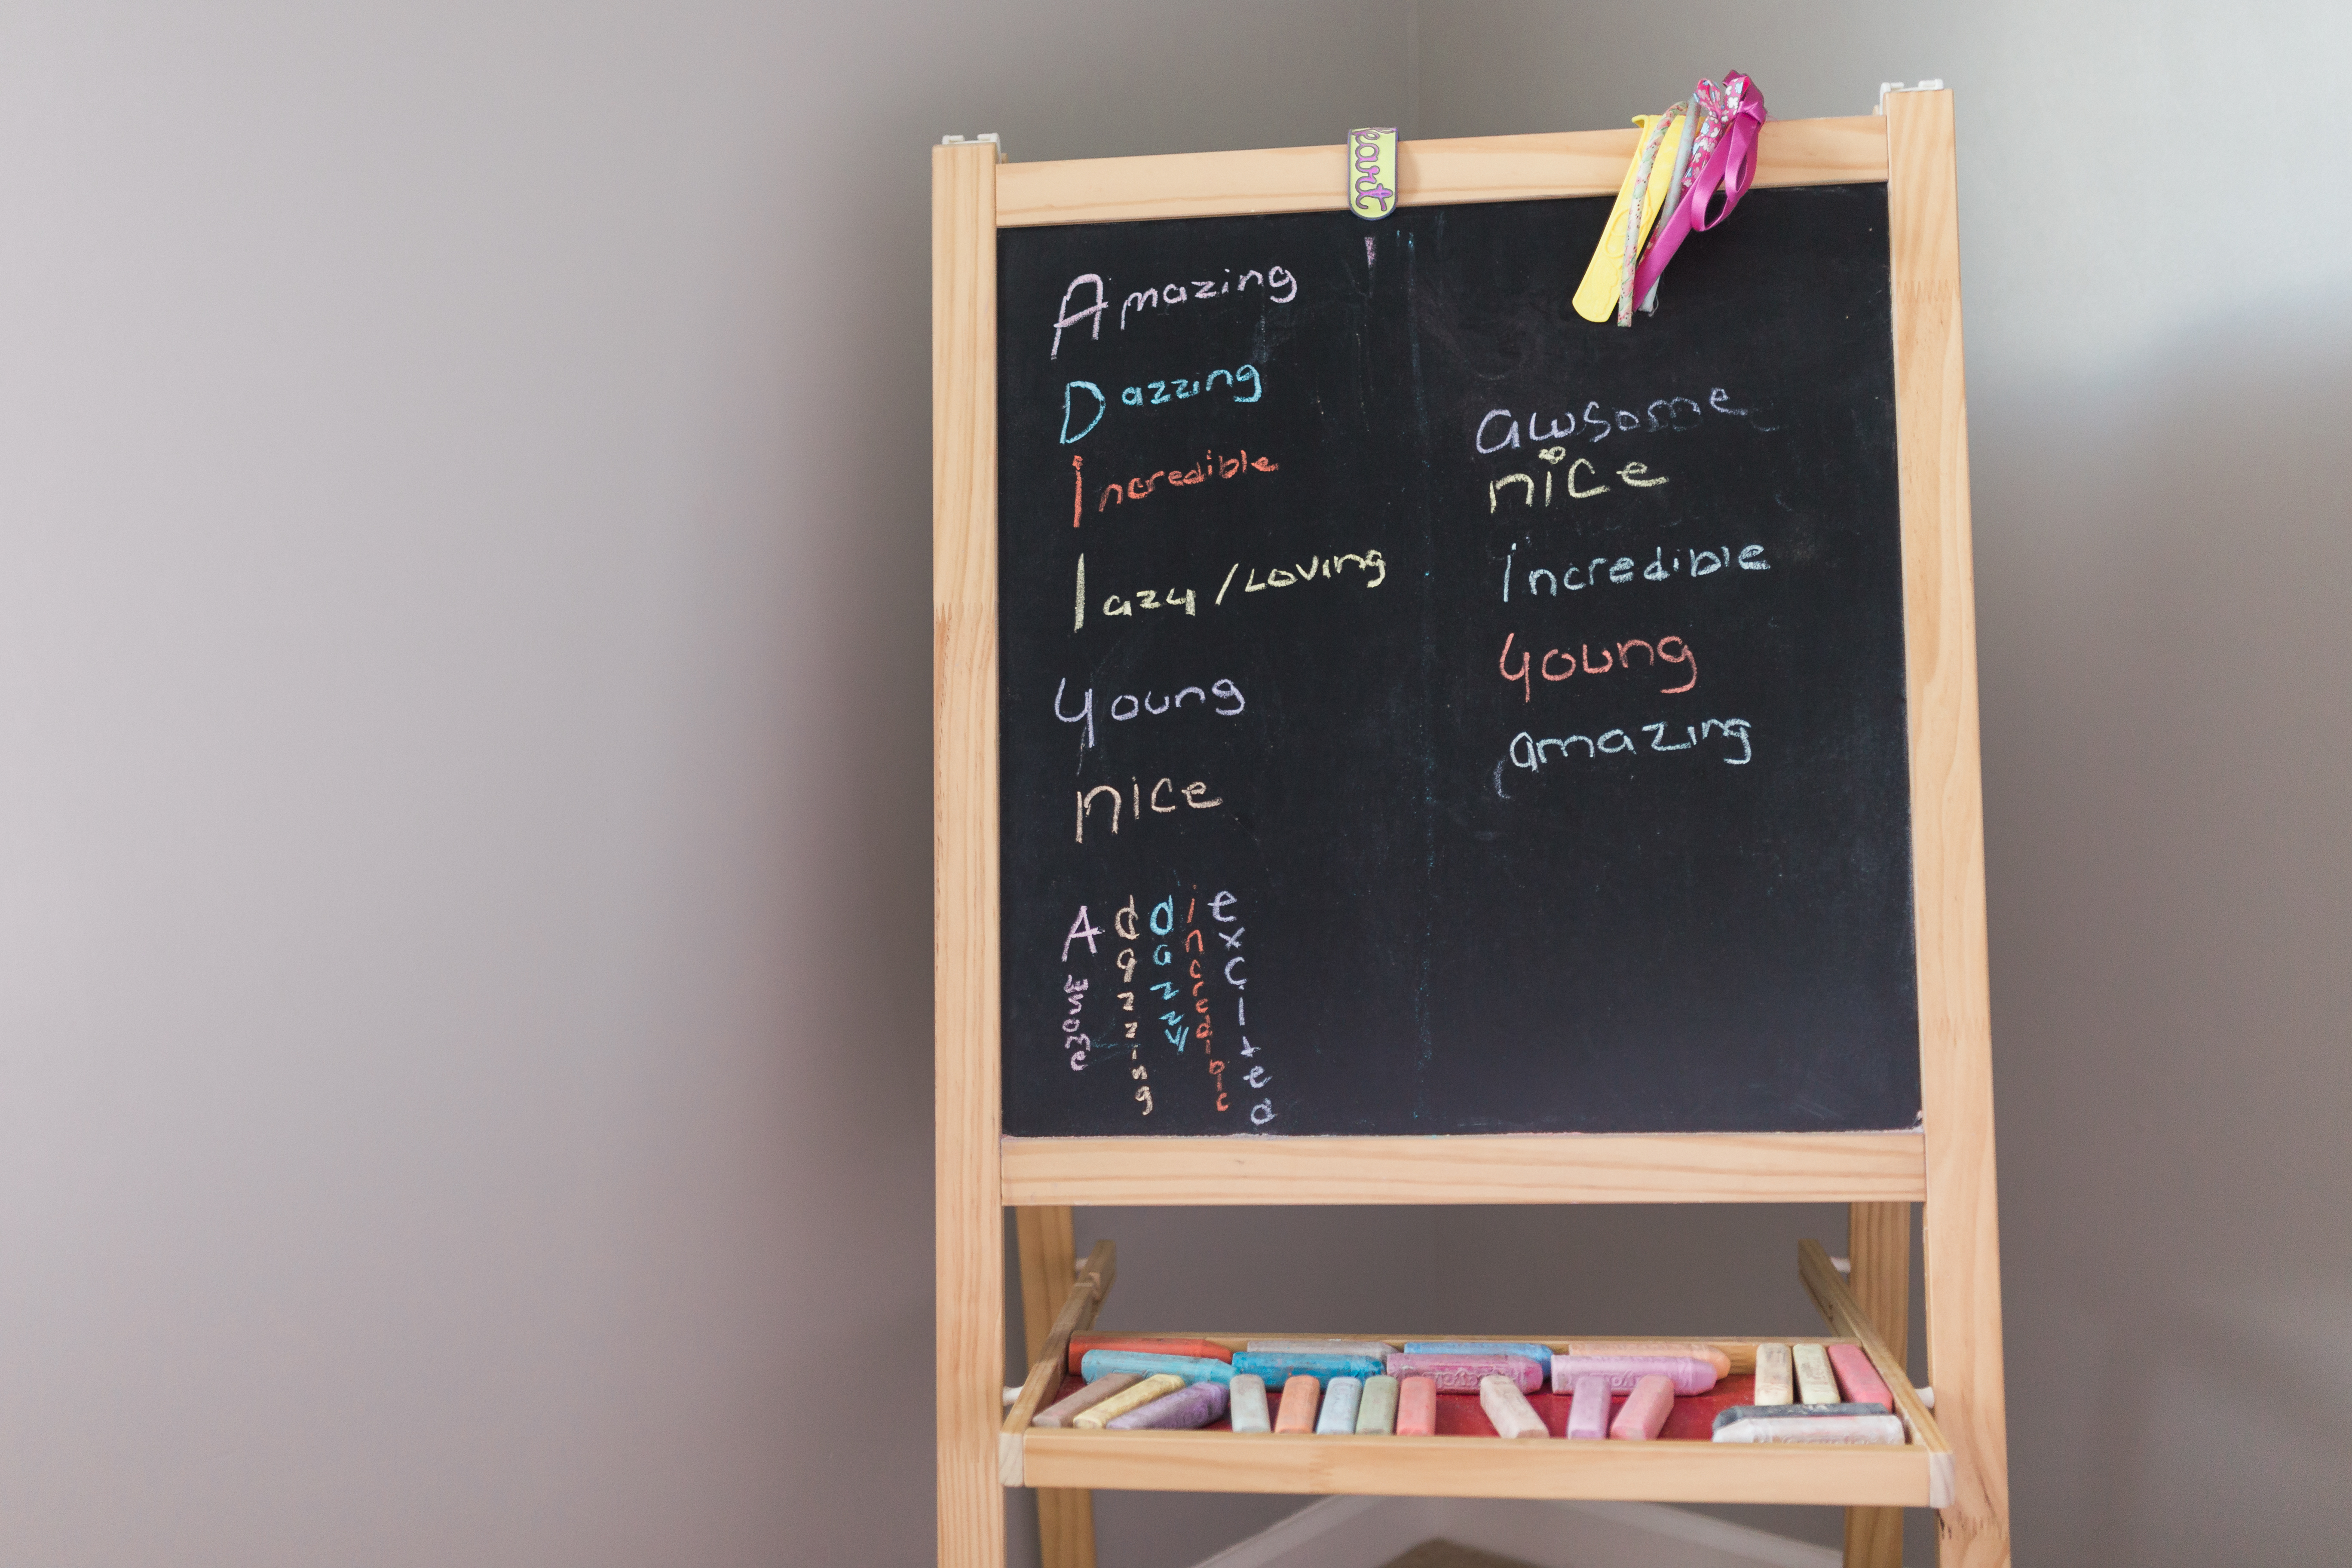 eart
Amazing
Dazzing
Incredible
lazy / Loving
young
nice
awsome
nice
incredible
young
amazing
Awsome
dazzing
dazzy
incredible
excited